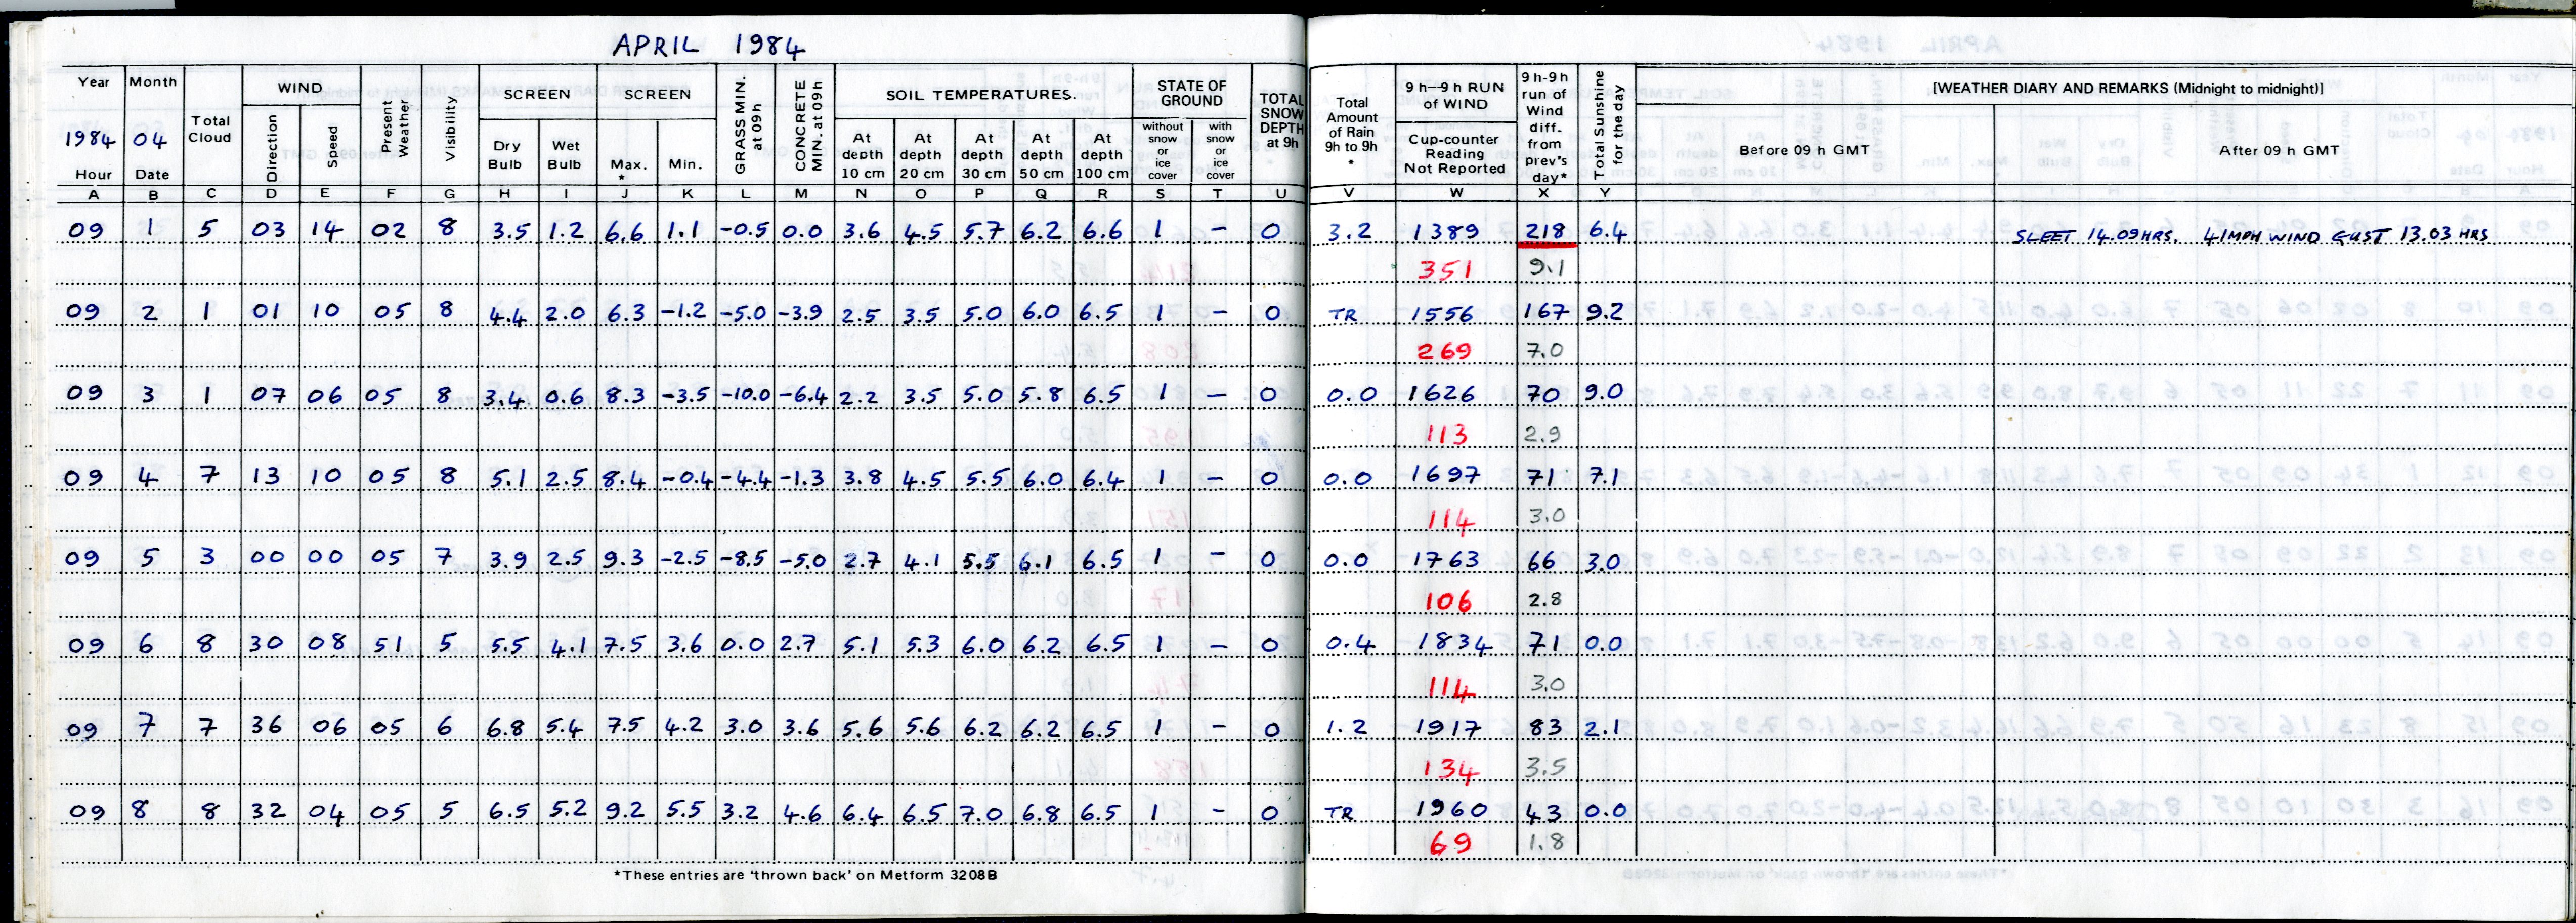 APRIL 1984
Year Month Total Cloud WIND Present Weather Visibility SCREEN SCREEN GRASS MIN. at 09 h CONCRETE MIN. at 09h SOIL TEMPERATURES. STATE OF GROUND TOTAL SNOW DEPTH at 9h Total Amount of Rain 9h to 9h * 9 h—9 h RUN of WIND 9 h-9 h run of Wind diff. from prev's day* Total Sunshine for the day [WEATHER DIARY AND REMARKS (Midnight to midnight)]
1984 04 Direction Speed Dry Bulb Wet Bulb Max. * Min. At depth 10 cm At depth 20 cm At depth 30 cm At depth 50 cm At depth 100 cm without snow or ice cover with snow or ice cover Cup-counter Reading Not Reported Before 09 h GMT After 09 h GMT
Hour Date
A B C D E F G H I J K L M N O P Q R S T U V W X Y
09 1 5 03 14 02 8 3.5 1.2 6.6 1.1 -0.5 0.0 3.6 4.5 5.7 6.2 6.6 1 - 0 3.2 1389 218 6.4 SLEET 14.09HRS. 41MPH WIND GUST 13.03 HRS
351 9.1
09 2 1 01 10 05 8 4.4 2.0 6.3 -1.2 -5.0 -3.9 2.5 3.5 5.0 6.0 6.5 1 - 0 TR 1556 167 9.2
269 7.0
09 3 1 07 06 05 8 3.4 0.6 8.3 -3.5 -10.0 -6.4 2.2 3.5 5.0 5.8 6.5 1 - 0 0.0 1626 70 9.0
113 2.9
09 4 7 13 10 05 8 5.1 2.5 8.4 -0.4 -4.4 -1.3 3.8 4.5 5.5 6.0 6.4 1 - 0 0.0 1697 71 7.1
114 3.0
09 5 3 00 00 05 7 3.9 2.5 9.3 -2.5 -8.5 -5.0 2.7 4.1 5.5 6.1 6.5 1 - 0 0.0 1763 66 3.0
106 2.8
09 6 8 30 08 51 5 5.5 4.1 7.5 3.6 0.0 2.7 5.1 5.3 6.0 6.2 6.5 1 - 0 0.4 1834 71 0.0
114 3.0
09 7 7 36 06 05 6 6.8 5.4 7.5 4.2 3.0 3.6 5.6 5.6 6.2 6.2 6.5 1 - 0 1.2 1917 83 2.1
134 3.5
09 8 8 32 04 05 5 6.5 5.2 9.2 5.5 3.2 4.6 6.4 6.5 7.0 6.8 6.5 1 - 0 TR 1960 43 0.0
69 1.8
*These entries are 'thrown back' on Metform 3208B